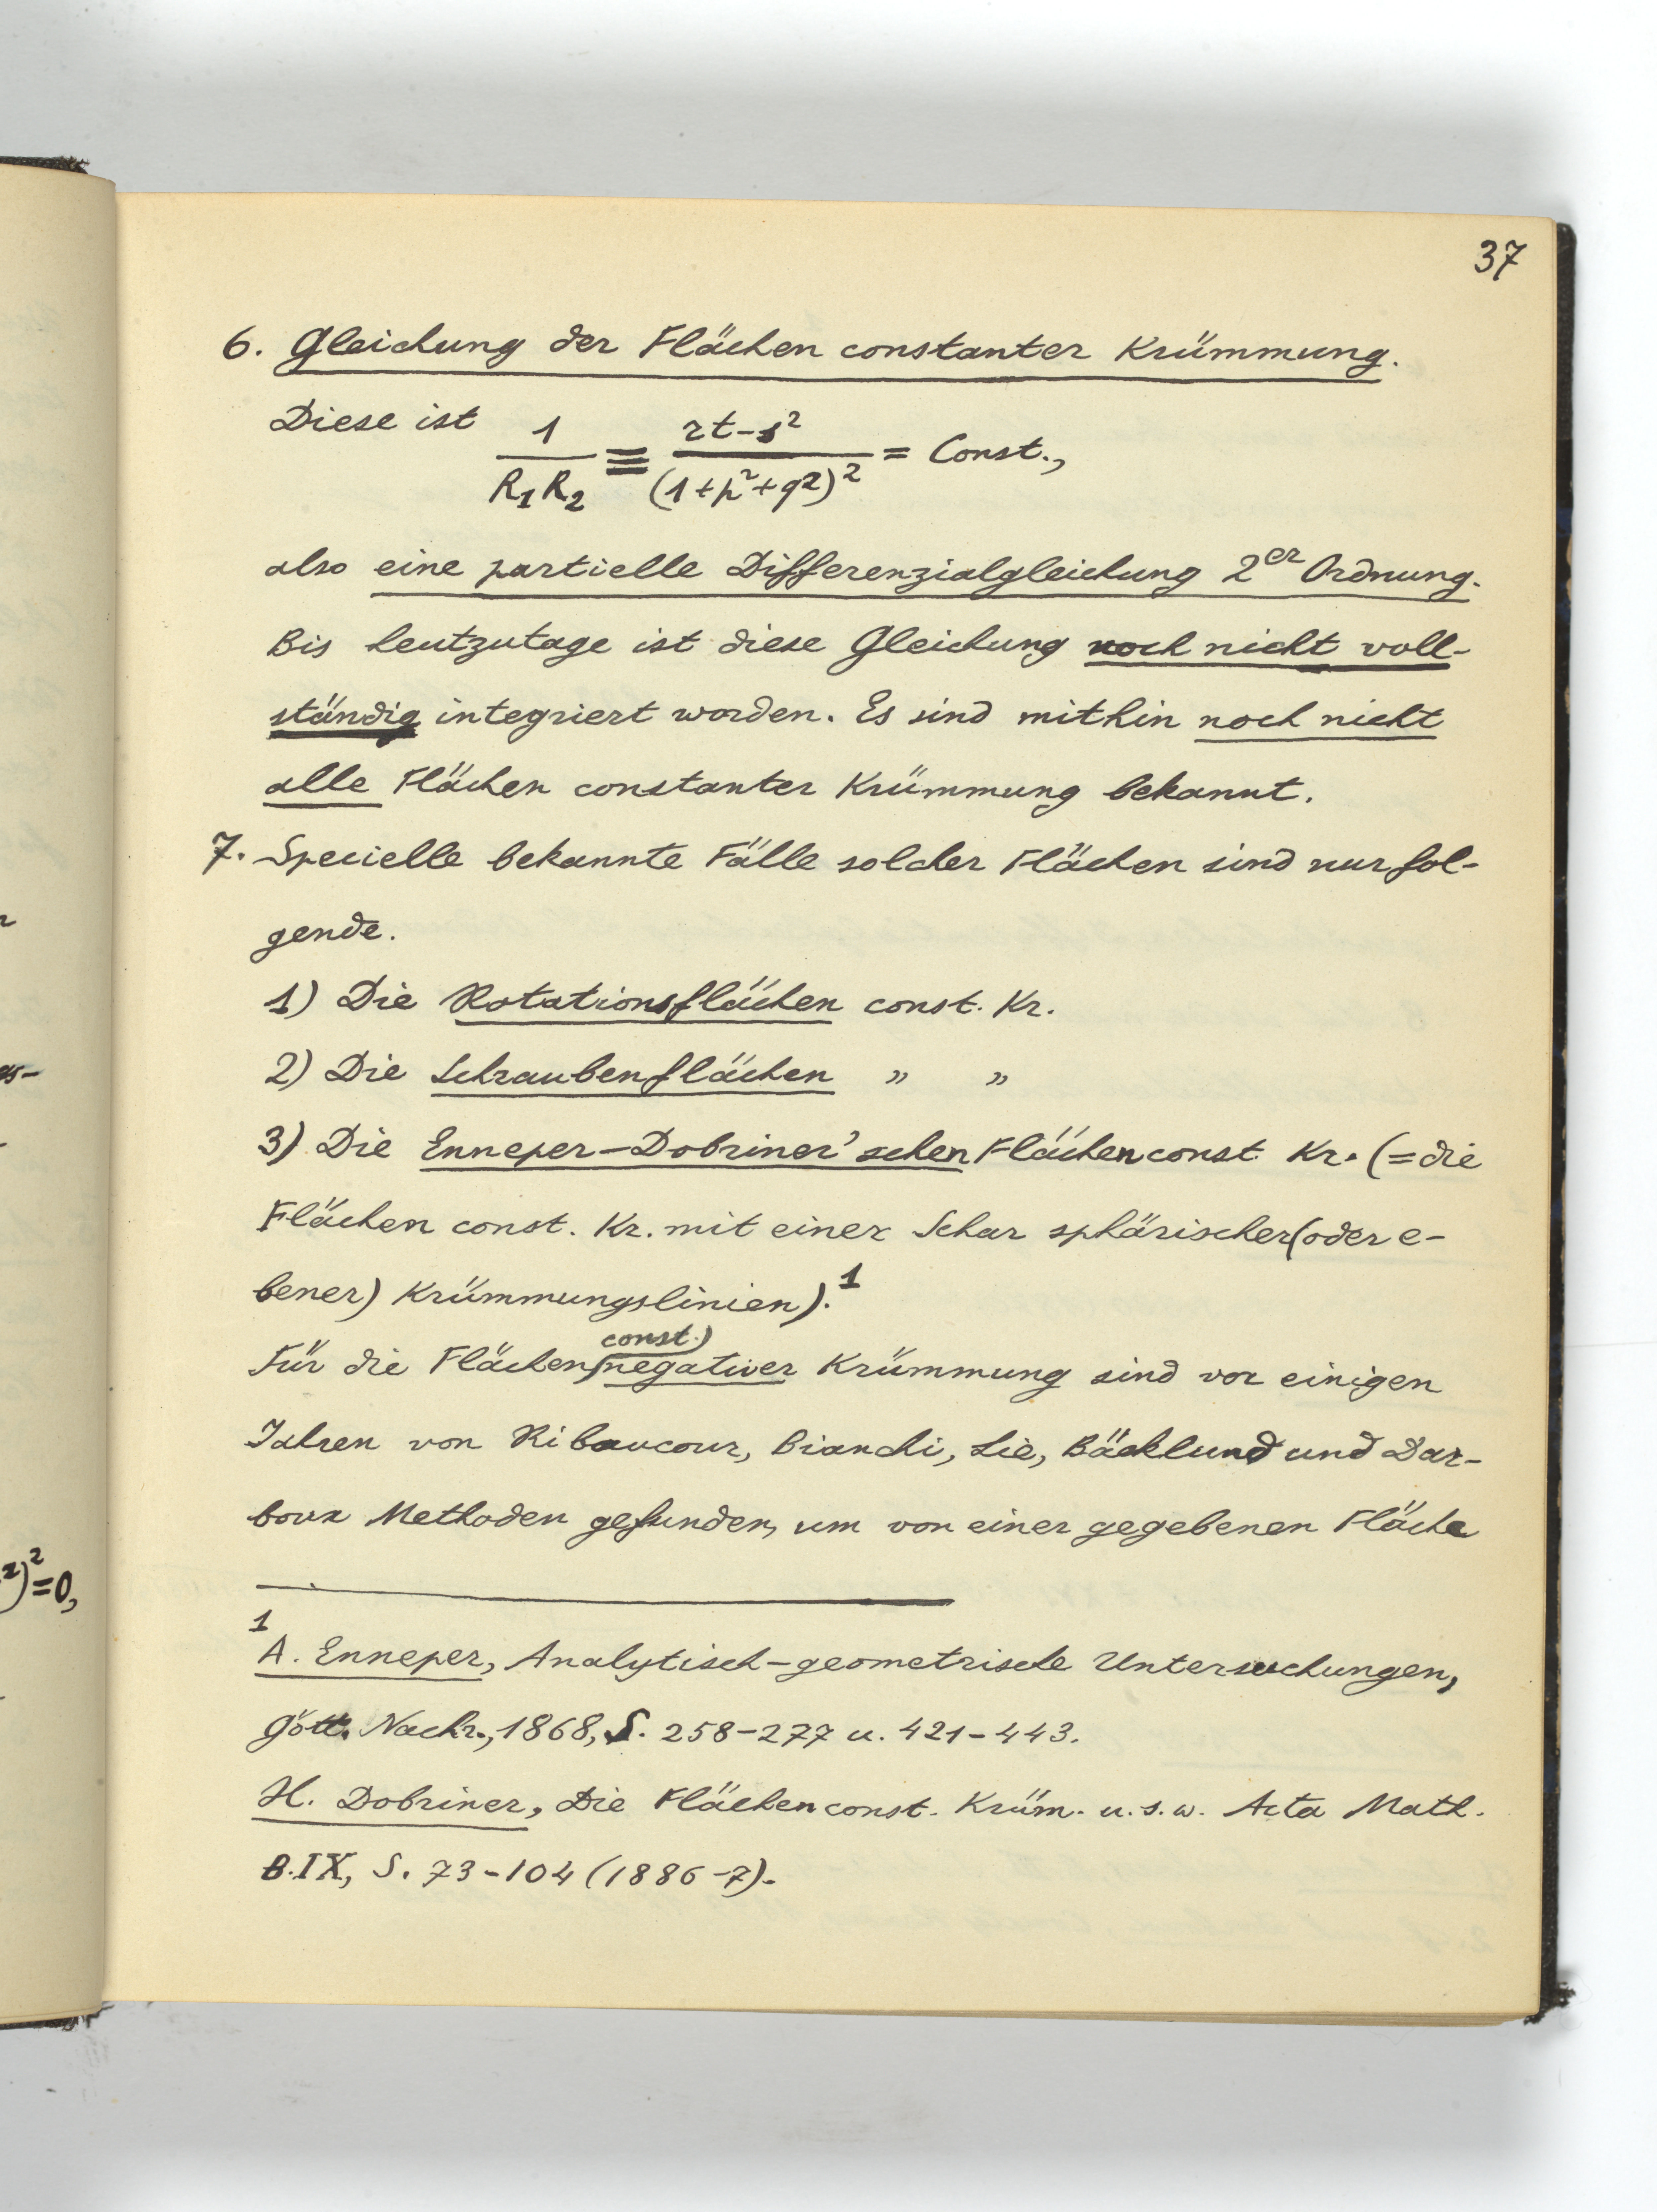 37
6. Gleichung der Flächen constanter Krümmung.
Diese ist 1/(R₁R₂) ≡ (rt-s²)/(1+p²+q²)² = Const.,
also eine partielle Differenzialgleichung 2er Ordnung.
Bis heutzutage ist diese Gleichung noch nicht voll-
ständig integriert worden. Es sind mithin noch nicht
alle Flächen constanter Krümmung bekannt.
7. Specielle bekannte Fälle solcher Flächen sind nur fol-
gende.
1) Die Rotationsflächen const. Kr.
2) Die Schraubenflächen " "
3) Die Enneper-Dobriner'schen Flächen const. Kr. (=die
Flächen const. Kr. mit einer Schar sphärischer (oder e-
bener) Krümmungslinien).¹
Für die Flächen (const.) negativer Krümmung sind vor einigen
Jahren von Ribaucour, Bianchi, Lie, Bäcklund und Dar-
boux Methoden gefunden, um von einer gegebenen Fläche
¹
A. Enneper, Analytisch-geometrische Untersuchungen,
Gött. Nachr., 1868, S. 258-277 u. 421-443.
H. Dobriner, Die Flächen const. Krüm. u.s.w. Acta Math.
B.IX, S. 73-104 (1886-7).
²)²=0,